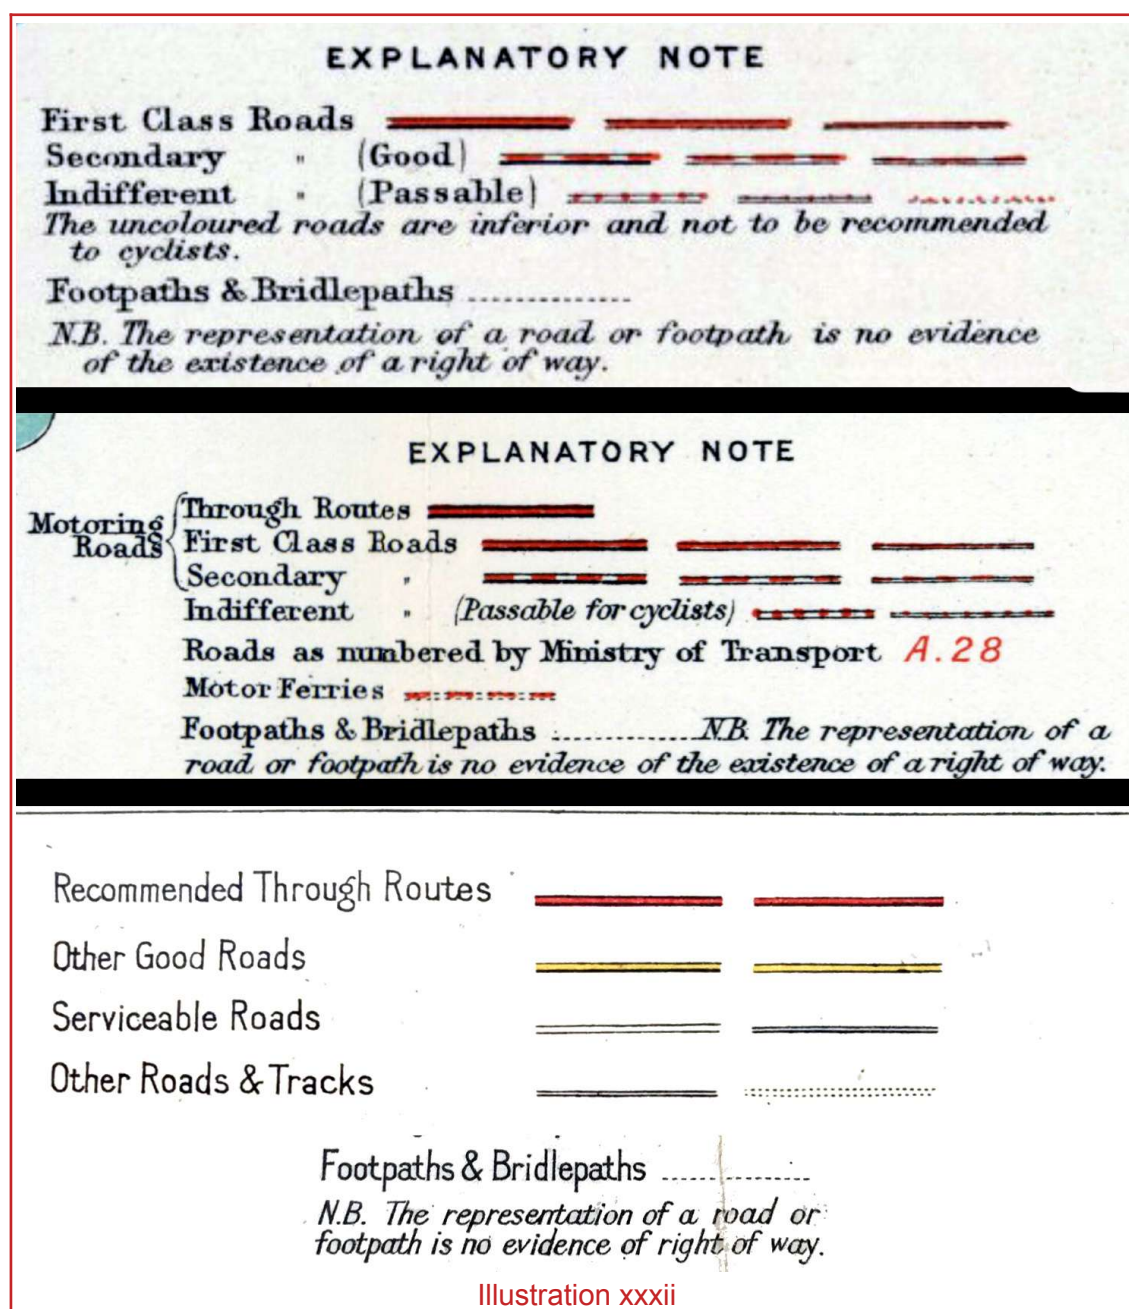 EXPLANATORY NOTE
First Class Roads
Secondary " (Good)
Indifferent " (Passable)
The uncoloured roads are inferior and not to be recommended
to cyclists.
Footpaths & Bridlepaths ..............
N.B. The representation of a road or footpath is no evidence
of the existence of a right of way.
EXPLANATORY NOTE
Motoring Roads
Through Routes
First Class Roads
Secondary "
Indifferent " (Passable for cyclists)
Roads as numbered by Ministry of Transport A.28
Motor Ferries
Footpaths & Bridlepaths ..............N.B. The representation of a
road or footpath is no evidence of the existence of a right of way.
Recommended Through Routes
Other Good Roads
Serviceable Roads
Other Roads & Tracks
Footpaths & Bridlepaths ..............
N.B. The representation of a road or
footpath is no evidence of right of way.
Illustration xxxii